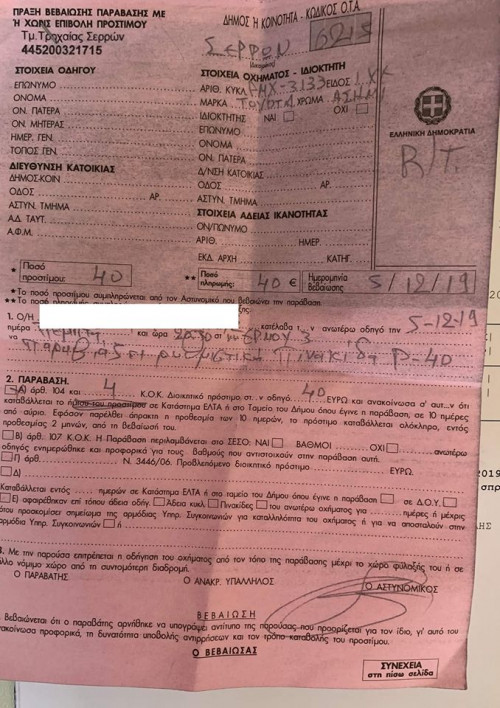 ΠΡΑΞΗ ΒΕΒΑΙΩΣΗΣ ΠΑΡΑΒΑΣΗΣ ΜΕ
Ή ΧΩΡΙΣ ΕΠΙΒΟΛΗ ΠΡΟΣΤΙΜΟΥ
Τμ.Τρχαίας Σερρών
445200321715
ΔΗΜΟΣ Ή ΚΟΙΝΟΤΗΤΑ - ΚΩΔΙΚΟΣ Ο.Τ.Α.
ΣΕΡΡΩΝ 6215
ΣΤΟΙΧΕΙΑ ΟΔΗΓΟΥ
ΕΠΩΝΥΜΟ
ΟΝΟΜΑ
ΟΝ. ΠΑΤΕΡΑ
ΟΝ. ΜΗΤΕΡΑΣ
ΗΜΕΡ. ΓΕΝ.
ΤΟΠΟΣ ΓΕΝ.
ΔΙΕΥΘΥΝΣΗ ΚΑΤΟΙΚΙΑΣ
ΔΗΜΟΣ-ΚΟΙΝ
ΟΔΟΣ ΑΡ.
ΑΣΤΥΝ. ΤΜΗΜΑ
ΑΔ. ΤΑΥΤ.
Α.Φ.Μ.
ΣΤΟΙΧΕΙΑ ΟΧΗΜΑΤΟΣ - ΙΔΙΟΚΤΗΤΗ
ΑΡΙΘ. ΚΥΚΛ. 3133 ΕΙΔΟΣ ΙΧΧ
ΜΑΡΚΑ ΤΟΥΟΤΑ ΧΡΩΜΑ ΑΣΗΜΙ
ΙΔΙΟΚΤΗΤΗΣ ΝΑΙ ΟΧΙ
ΕΠΩΝΥΜΟ
ΟΝΟΜΑ
ΟΝ. ΠΑΤΕΡΑ
Δ/ΝΣΗ ΚΑΤΟΙΚΙΑΣ
ΟΔΟΣ ΑΡ.
ΑΣΤΥΝ. ΤΜΗΜΑ
ΣΤΟΙΧΕΙΑ ΑΔΕΙΑΣ ΙΚΑΝΟΤΗΤΑΣ
ΟΝ/ΠΩΝΥΜΟ
ΑΡΙΘ. ΗΜΕΡ.
ΕΚΔ. ΑΡΧΗ ΚΑΤΗΓ.
ΕΛΛΗΝΙΚΗ ΔΗΜΟΚΡΑΤΙΑ
R/T.
* Ποσό προστίμου: 40
** Ποσό πληρωμής: 40 €
Ημερομηνία Βεβαίωσης 5/12/19
*Το ποσό προστίμου συμπληρώνεται από τον Αστυνομικό που βεβαιώνει την παράβαση
**Το ποσό πληρωμής
1. Ο/Η κατέλαβα τ..ν ανωτέρω οδηγό την 5-12-19
ημέρα Πέμπτη και ώρα 20.30
να παραβιάζει ρυθμιστική πινακίδα Ρ-40
2. ΠΑΡΑΒΑΣΗ.
Α) άρθ. 104 και 4 Κ.Ο.Κ. Διοικητικό πρόστιμο στ..ν οδηγό 40 ΕΥΡΩ και ανακοίνωσα σ' αυτ...ν ότι
καταβάλλεται το ήμισυ του προστίμου σε Κατάστημα ΕΛΤΑ ή στο Ταμείο του Δήμου όπου έγινε η παράβαση, σε 10 ημέρες
από αύριο. Εφόσον παρέλθει άπρακτη η προθεσμία των 10 ημερών, το πρόστιμο καταβάλλεται ολόκληρο, εντός
προθεσμίας 2 μηνών, από τη βεβαίωσή του.
Β) άρθ. 107 Κ.Ο.Κ. Η Παράβαση περιλαμβάνεται στο ΣΕΣΟ: ΝΑΙ ΒΑΘΜΟΙ ΟΧΙ ανωτέρω
οδηγός ενημερώθηκε και προφορικά για τους βαθμούς που αντιστοιχούν στην παράβαση αυτή.
Γ) άρθ. Ν. 3446/06. Προβλεπόμενο διοικητικό πρόστιμο ΕΥΡΩ.
Δ)
Καταβάλλεται εντός ημερών σε Κατάστημα ΕΛΤΑ ή στο ταμείο του Δήμου όπου έγινε η παράβαση σε Δ.Ο.Υ.
Ε) αφαιρέθηκαν επί τόπου άδεια οδήγ. Άδεια κυκλ Πινακίδες του ανωτέρω οχήματος για ημέρες ή μέχρις
ότου προσκομίσει σημείωμα της αρμόδιας Υπηρ. Συγκοινωνιών για καταλληλότητα του οχήματος ή για να αποσταλούν στην
αρμόδια Υπηρ. Συγκοινωνιών ή
Με την παρούσα επιτρέπεται η οδήγηση του οχήματος από τον τόπο της παράβασης μέχρι το χώρο φύλαξής του ή σε
άλλο νόμιμο χώρο από τη συντομότερη διαδρομή.
Ο ΠΑΡΑΒΑΤΗΣ Ο ΑΝΑΚΡ. ΥΠΑΛΛΗΛΟΣ Ο ΑΣΤΥΝΟΜΙΚΟΣ
ΒΕΒΑΙΩΣΗ
Βεβαιώνεται ότι ο παραβάτης αρνήθηκε να υπογράψει αντίτυπο της παρούσας που προορίζεται για τον ίδιο, γι' αυτό του
ανακοίνωσα προφορικά, τη δυνατότητα υποβολής αντιρρήσεων και τον τρόπο καταβολής του προστίμου.
Ο ΒΕΒΑΙΩΣΑΣ
ΣΥΝΕΧΕΙΑ
στη πίσω σελίδα
2019